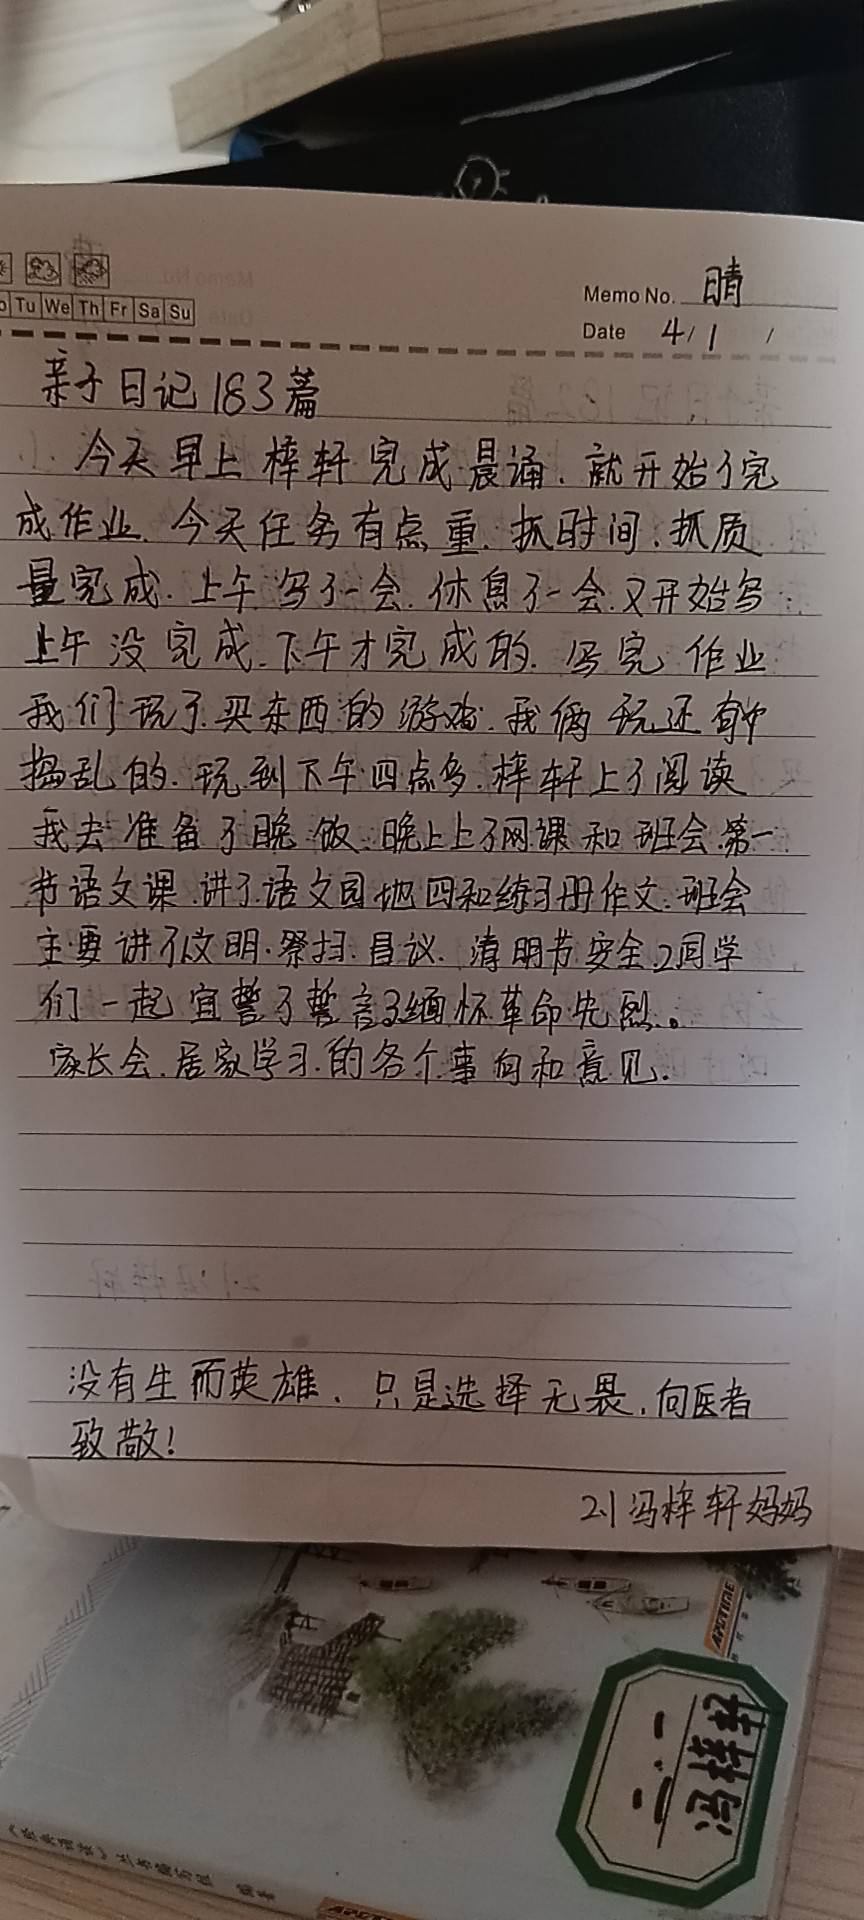 Memo No. 晴
Tu We Th Fr Sa Su
Date 4/1/
亲子日记183篇
今天早上梓轩完成晨诵.就开始了完
成作业.今天任务有点重.抓时间.抓质
量完成.上午写了一会.休息了一会.又开始写
上午没完成.下午才完成的.写完作业
我们玩了.买东西的游戏.我俩玩还有
捣乱的.玩到下午四点多.梓轩上了阅读
我去准备了晚饭.晚上上了网课和班会.第一
节语文课.讲了.语文园地四和练习册作文.班会
主要讲了文明.祭扫.自议.清明节安全.同学
们一起宣誓了誓言缅怀革命先烈.。
家长会.居家学习.的各个事向和意见.
没有生而英雄、只是选择无畏.向医者
致敬!
2.1冯梓轩妈妈
二.一
冯梓轩